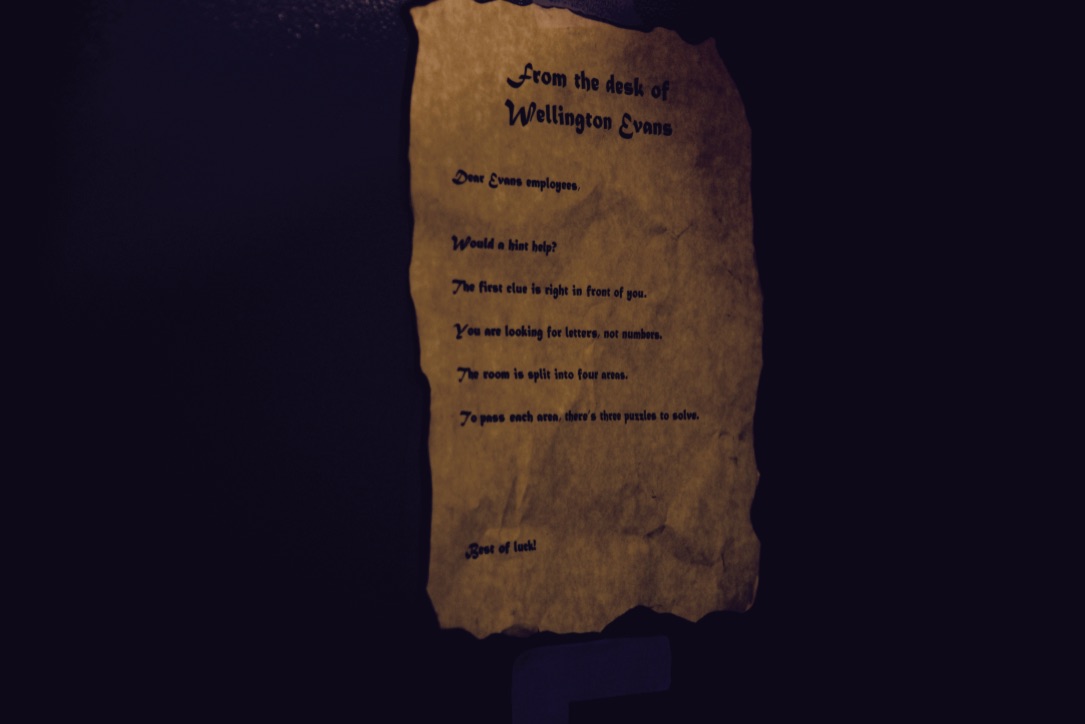 From the desk of
Wellington Evans
Dear Evans employees,
Would a hint help?
The first clue is right in front of you.
You are looking for letters, not numbers.
The room is split into four areas.
To pass each area, there's three puzzles to solve.
Best of luck!